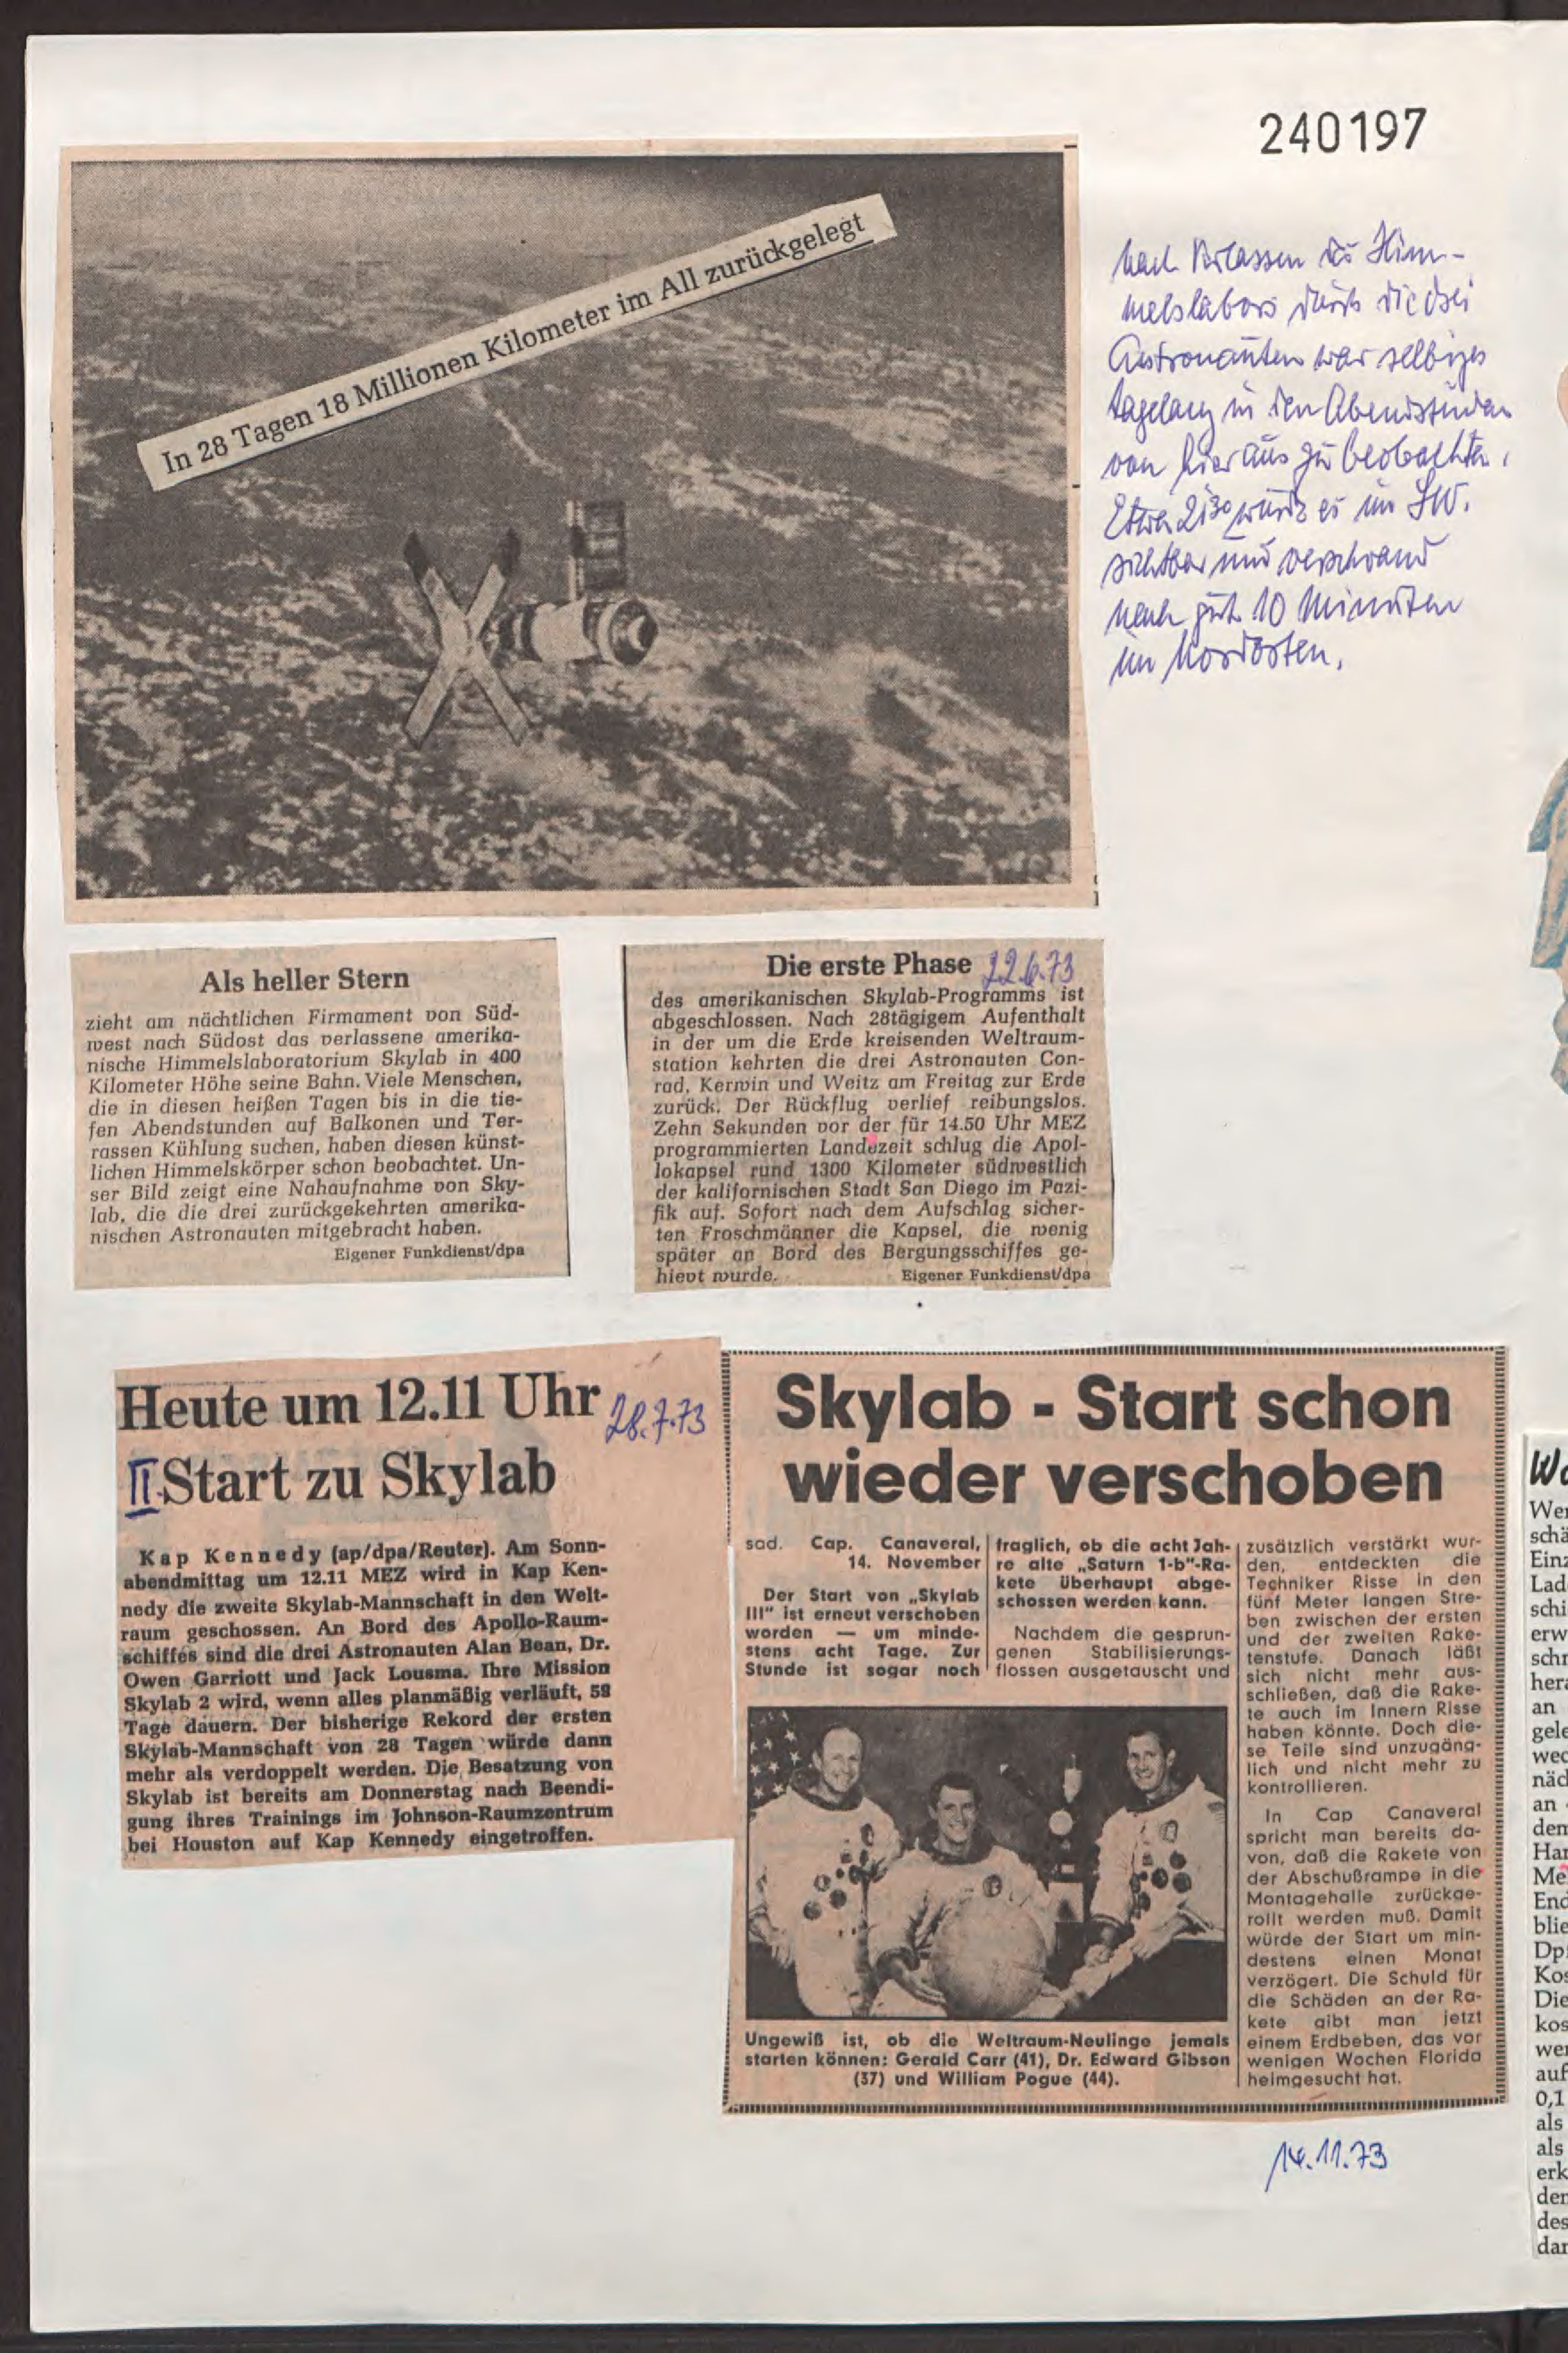 240197
In 28 Tagen 18 Millionen Kilometer im All zurückgelegt
nach Verlassen des Him-
melslabors durch die drei
Astronauten war selbiges
tagelang in den Abendstunden
von hier aus zu beobachten.
Etwa 21³⁰ wurde es im SW.
sichtbar und verschwand
nach gut 10 Minuten
im Nordosten.
Als heller Stern
zieht am nächtlichen Firmament von Süd-
west nach Südost das verlassene amerika-
nische Himmelslaboratorium Skylab in 400
Kilometer Höhe seine Bahn. Viele Menschen,
die in diesen heißen Tagen bis in die tie-
fen Abendstunden auf Balkonen und Ter-
rassen Kühlung suchen, haben diesen künst-
lichen Himmelskörper schon beobachtet. Un-
ser Bild zeigt eine Nahaufnahme von Sky-
lab, die die drei zurückgekehrten amerika-
nischen Astronauten mitgebracht haben.
Eigener Funkdienst/dpa
Die erste Phase 22.6.73
des amerikanischen Skylab-Programms ist
abgeschlossen. Nach 28tägigem Aufenthalt
in der um die Erde kreisenden Weltraum-
station kehrten die drei Astronauten Con-
rad, Kerwin und Weitz am Freitag zur Erde
zurück. Der Rückflug verlief reibungslos.
Zehn Sekunden vor der für 14.50 Uhr MEZ
programmierten Landezeit schlug die Apol-
lokapsel rund 1300 Kilometer südwestlich
der kalifornischen Stadt San Diego im Pazi-
fik auf. Sofort nach dem Aufschlag sicher-
ten Froschmänner die Kapsel, die wenig
später an Bord des Bergungsschiffes ge-
hievt wurde. Eigener Funkdienst/dpa
Heute um 12.11 Uhr 28.7.73
II. Start zu Skylab
Kap Kennedy (ap/dpa/Reuter). Am Sonn-
abendmittag um 12.11 MEZ wird in Kap Ken-
nedy die zweite Skylab-Mannschaft in den Welt-
raum geschossen. An Bord des Apollo-Raum-
schiffes sind die drei Astronauten Alan Bean, Dr.
Owen Garriott und Jack Lousma. Ihre Mission
Skylab 2 wird, wenn alles planmäßig verläuft, 58
Tage dauern. Der bisherige Rekord der ersten
Skylab-Mannschaft von 28 Tagen würde dann
mehr als verdoppelt werden. Die Besatzung von
Skylab ist bereits am Donnerstag nach Beendi-
gung ihres Trainings im Johnson-Raumzentrum
bei Houston auf Kap Kennedy eingetroffen.
Skylab - Start schon
wieder verschoben
sad. Cap. Canaveral,
14. November
Der Start von „Skylab
III" ist erneut verschoben
worden — um minde-
stens acht Tage. Zur
Stunde ist sogar noch
fraglich, ob die acht Jah-
re alte „Saturn 1-b"-Ra-
kete überhaupt abge-
schossen werden kann.
Nachdem die gesprun-
genen Stabilisierungs-
flossen ausgetauscht und
zusätzlich verstärkt wur-
den, entdeckten die
Techniker Risse in den
fünf Meter langen Stre-
ben zwischen der ersten
und der zweiten Rake-
tenstufe. Danach läßt
sich nicht mehr aus-
schließen, daß die Rake-
te auch im Innern Risse
haben könnte. Doch die-
se Teile sind unzugäng-
lich und nicht mehr zu
kontrollieren.
In Cap Canaveral
spricht man bereits da-
von, daß die Rakete von
der Abschußrampe in die
Montagehalle zurückge-
rollt werden muß. Damit
würde der Start um min-
destens einen Monat
verzögert. Die Schuld für
die Schäden an der Ra-
kete gibt man jetzt
einem Erdbeben, das vor
wenigen Wochen Florida
heimgesucht hat.
Ungewiß ist, ob die Weltraum-Neulinge jemals
starten können: Gerald Carr (41), Dr. Edward Gibson
(37) und William Pogue (44).
14.11.73